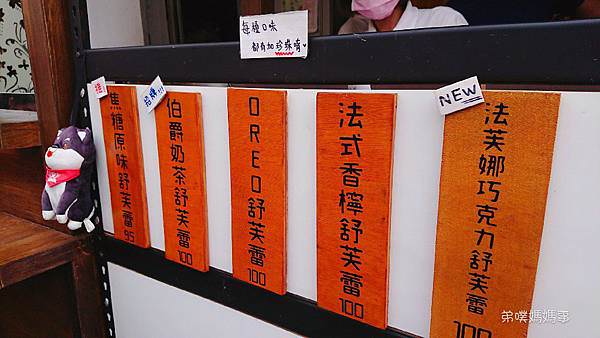 每種口味
都有加珍珠唷
焦糖原味舒芙蕾95
招牌!!!
伯爵奶茶舒芙蕾100
OREO舒芙蕾100
法式香檸舒芙蕾100
NEW
法芙娜巧克力舒芙蕾100
弟噗媽媽家